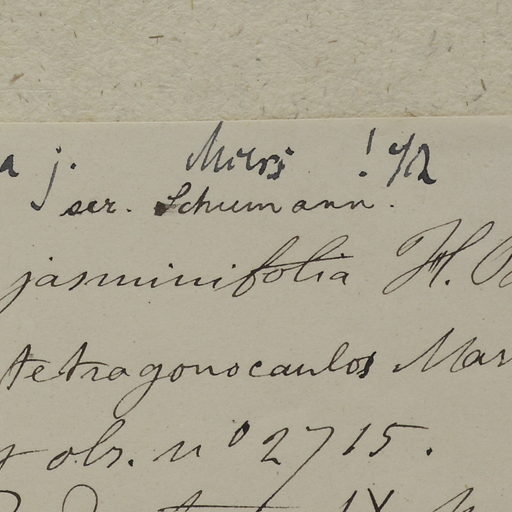 a j. Miers !
scr. Schumann.
jasminifolia H.
tetragonocaulos Mar
obs. nº 2715.
IX